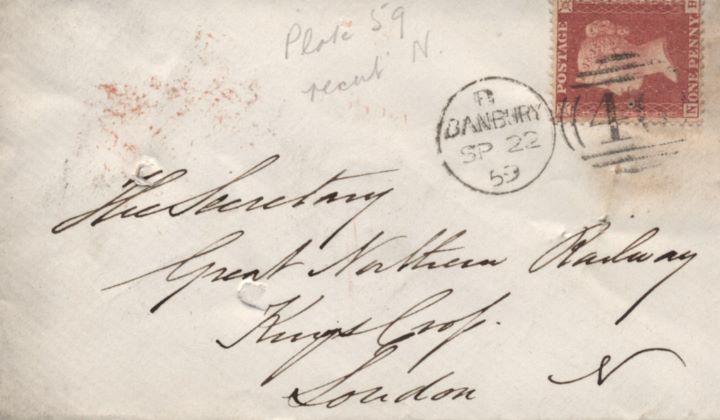 Plate 59
recut N.
POSTAGE
ONE PENNY
B
BANBURY
SP 22
59
The Secretary
Great Northern Railway
Kings Cross.
London N